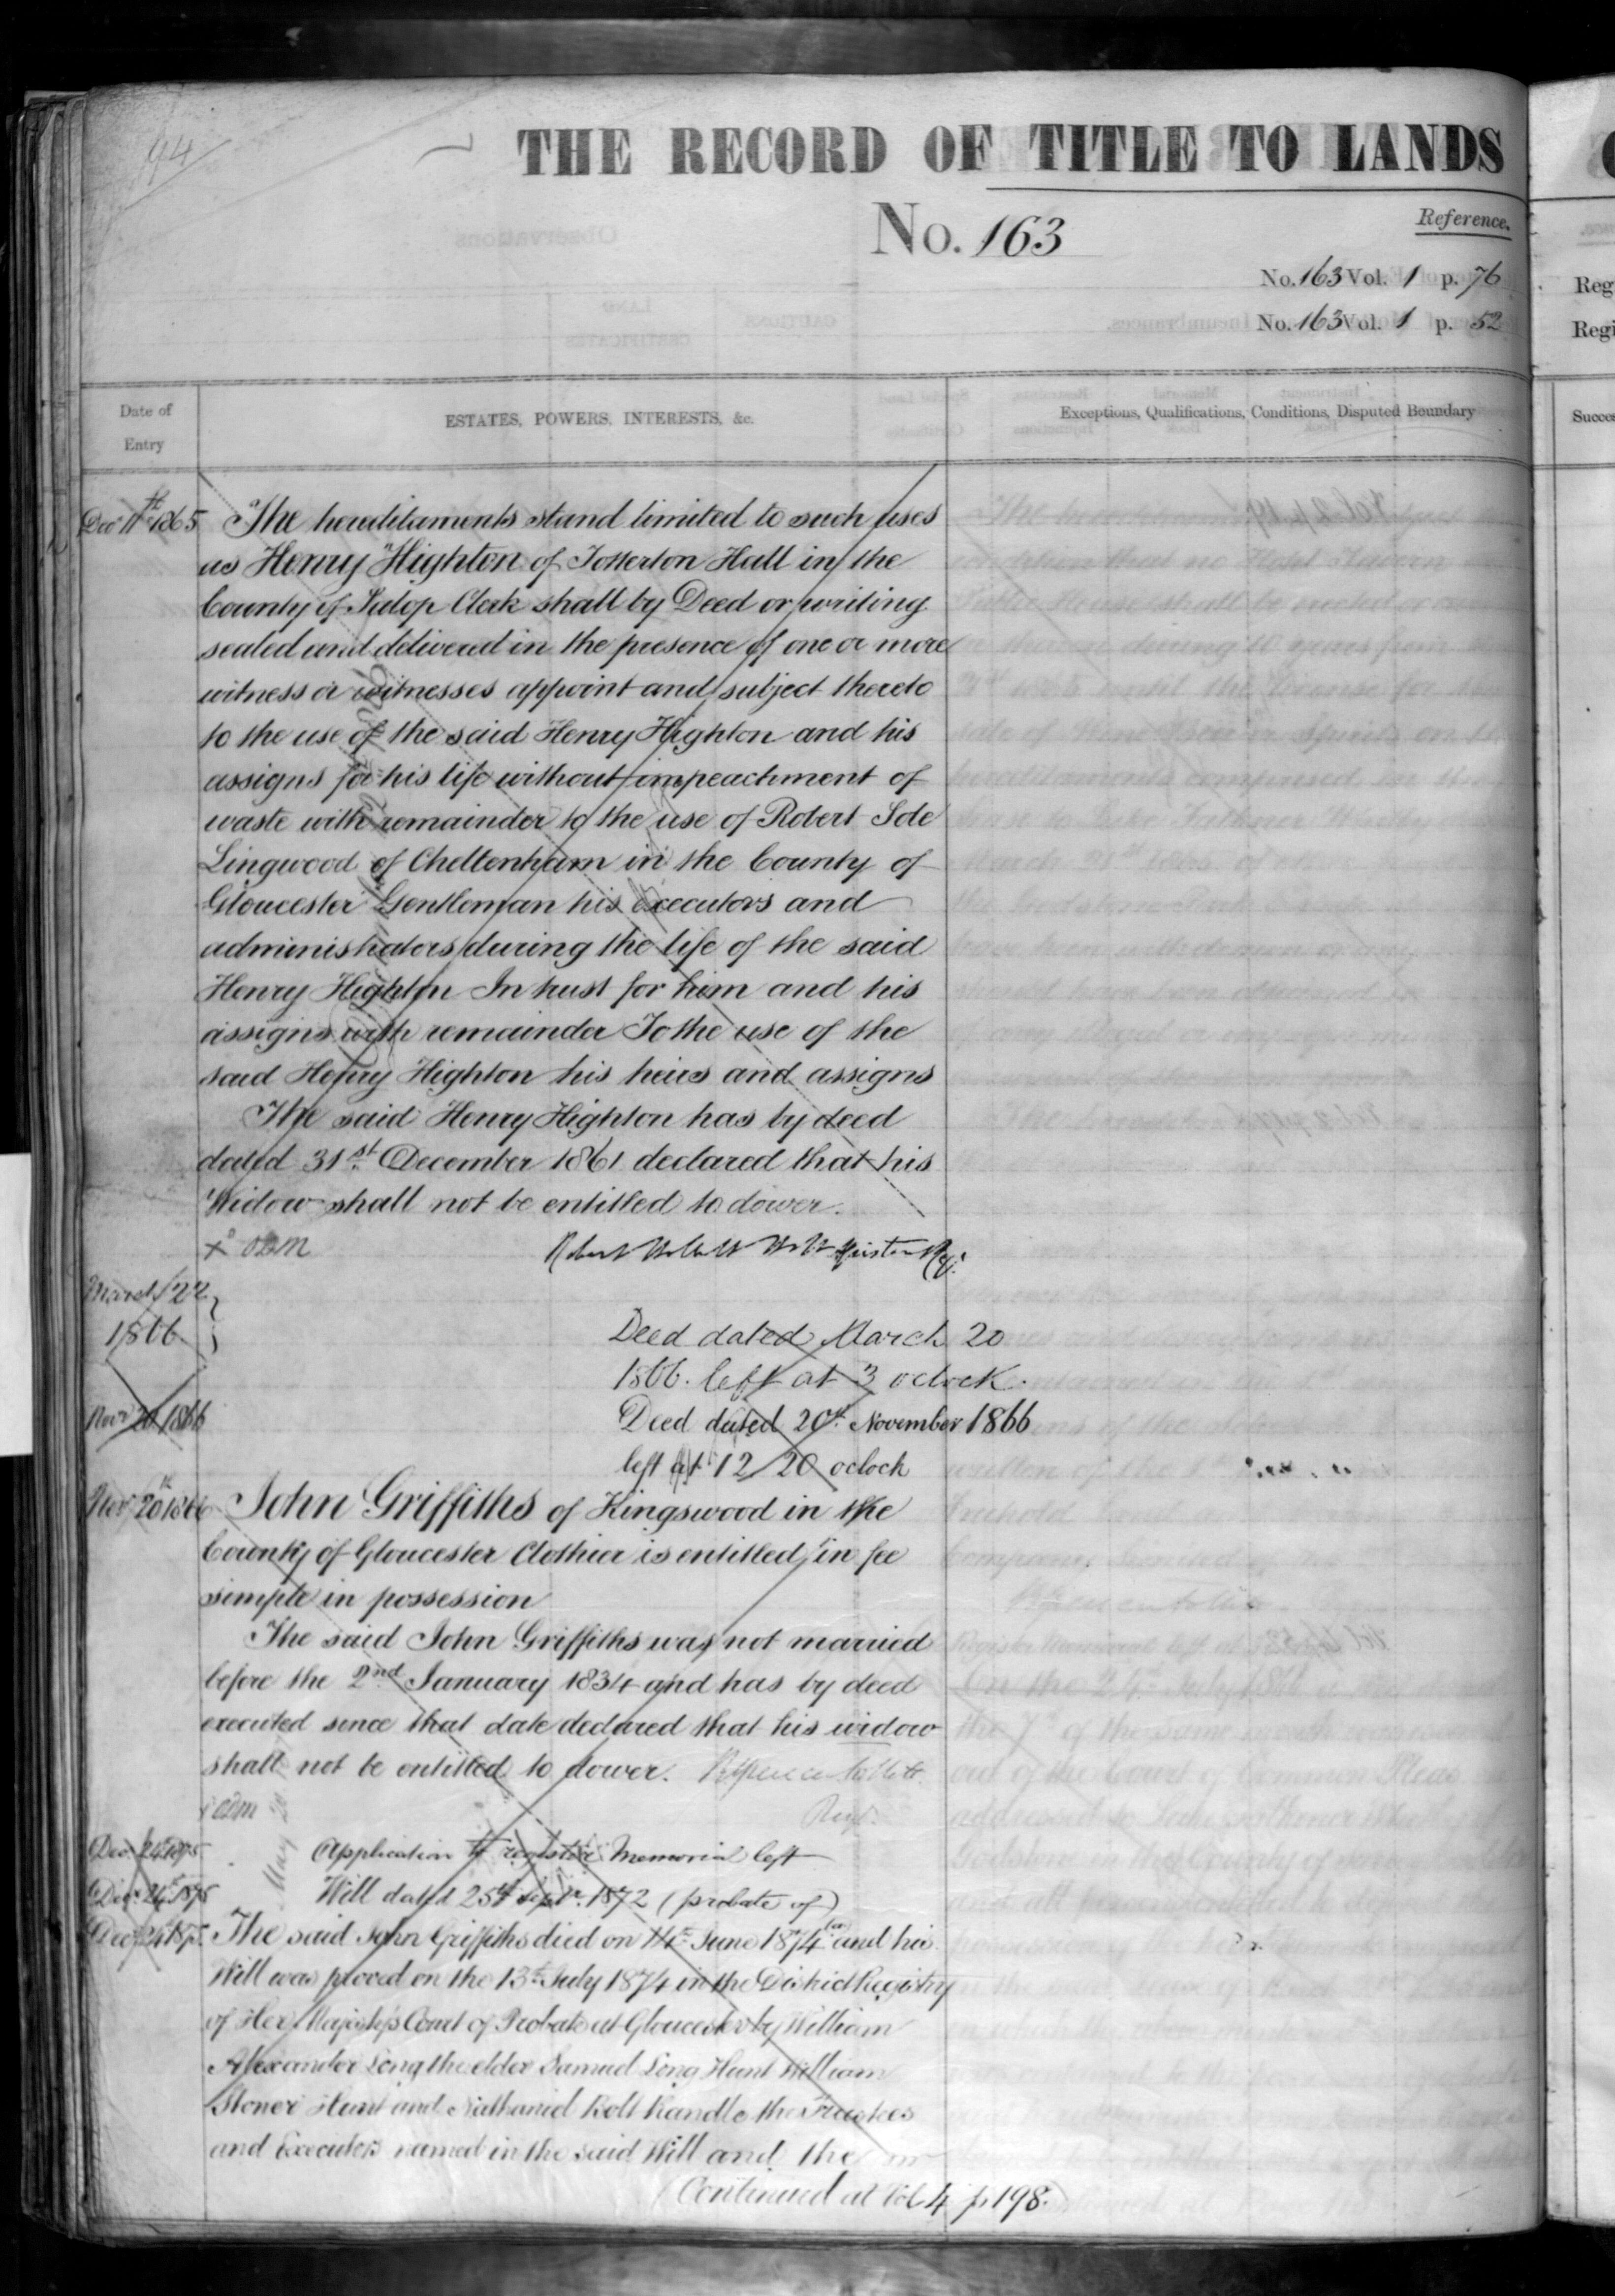 94
THE RECORD OF TITLE TO LANDS
No. 163
Reference.
No. 163 Vol. 1 p. 76
No. 163 Vol. 1 p. 52
Date of
Entry
ESTATES, POWERS, INTERESTS, &c.
Exceptions, Qualifications, Conditions, Disputed Boundary
Dec 11th 1865 The hereditaments stand limited to such uses
as Henry Highton of Totterton Hall in the
County of Salop Clerk shall by Deed or writing
sealed and delivered in the presence of one or more
witness or witnesses appoint and subject thereto
to the use of the said Henry Highton and his
assigns for his life without impeachment of
waste with remainder to the use of Robert Sole
Lingwood of Cheltenham in the County of
Gloucester Gentleman his executors and
administrators during the life of the said
Henry Highton In trust for him and his
assigns with remainder To the use of the
said Henry Highton his heirs and assigns
The said Henry Highton has by deed
dated 31st December 1861 declared that his
Widow shall not be entitled to dower.
March 22
1866
Deed dated March 20
1866. left at 3 oclock.
Novr 20 1866 Deed dated 20th November 1866
left at 12/20 oclock
Novr 20th 1866 John Griffiths of Kingswood in the
County of Gloucester Clothier is entitled in fee
simple in possession
The said John Griffiths was not married
before the 2nd January 1834 and has by deed
executed since that date declared that his widow
shall not be entitled to dower.
Regr.
Dec. 24 1875 Application to register Memorial left
Dec. 24 1875 Will dated 25th Septr. 1872 (probate of)
Dec. 24 1875. The said John Griffiths died on 14th June 1874 and his
Will was proved on the 13th July 1874 in the District Registry
of Her Majesty's Court of Probate at Gloucester by William
Alexander Long the elder Samuel Long Hunt William
Stoner Hunt and Nathaniel Bolt Randle the Trustees
and Executors named in the said Will and the
(Continued at Vol. 4 p. 198.)
Reg
Regi
Succes